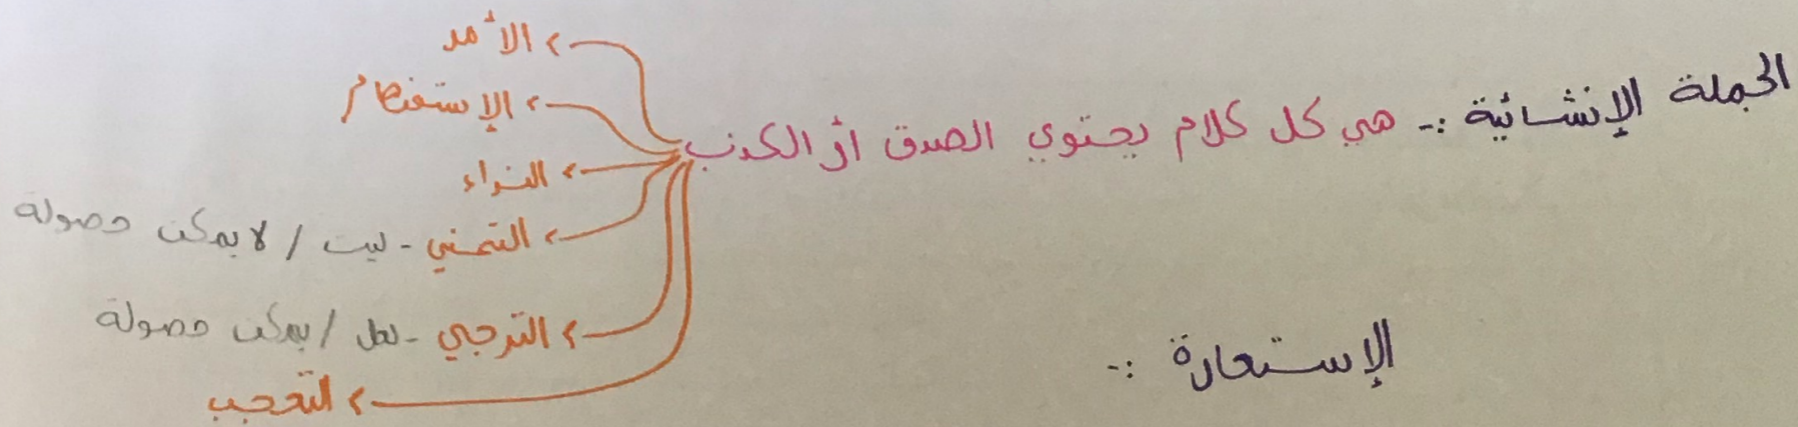 الجملة الإنشائية :- هي كل كلام يحتوي الصدق أو الكذب
الأمر
الإستفهام
النداء
التمني - ليت / لا يمكن حصولة
الترجي - لعل / يمكن حصولة
التعجب
الإستعارة :-